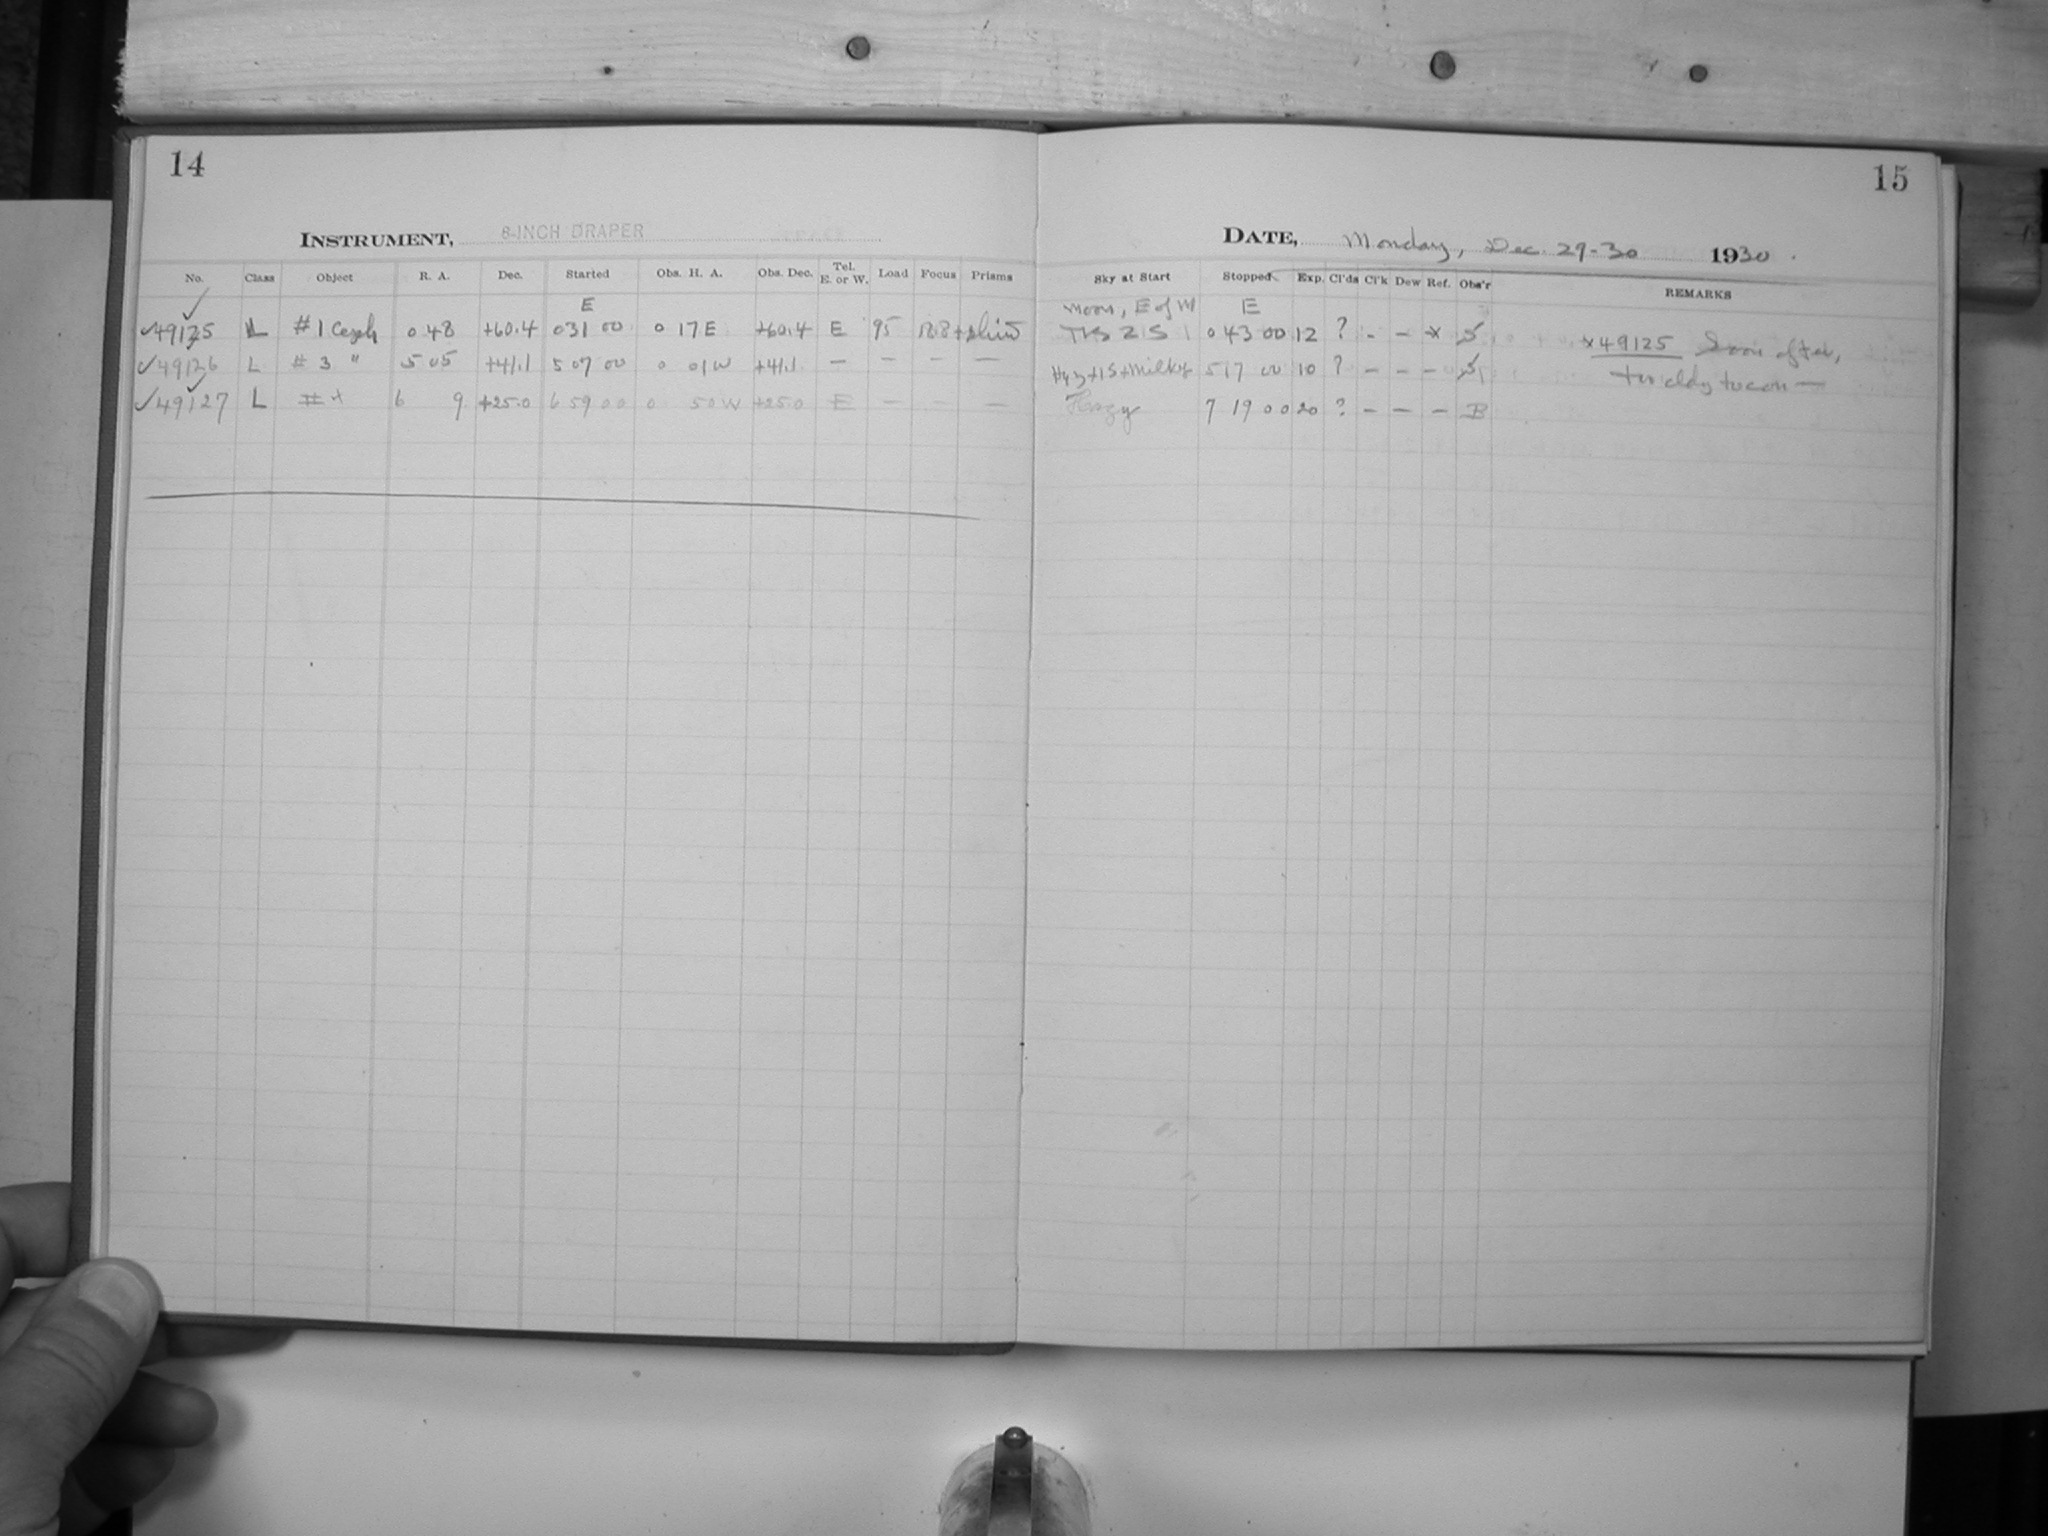 14
INSTRUMENT, 8-INCH DRAPER
No. Class Object R. A. Dec. Started Obs. H. A. Obs. Dec. Tel. E. or W. Load Focus Prisms
E
✓49125 L #1 Ceph 0 48 +60.4 0 31 00 0 17 E +60.4 E 95
✓49126 L #3 " 5 05 +41.1 5 07 00 0 01 W +41.1 — — — —
✓49127 L 6 9 +25.0 6 59 00 0 50 W +25.0 E — — —
15
DATE, Monday, Dec. 29-30 1930.
Sky at Start Stopped Exp. Cl'ds Cl'k Dew Ref. Obs'r REMARKS
Moon, E of M E
0 43 00 12 ? - - x S x49125 Soon after,
+ Milky 5 17 00 10 ? - - - S too cldy to con —
Hazy 7 19 00 20 ? - - - B